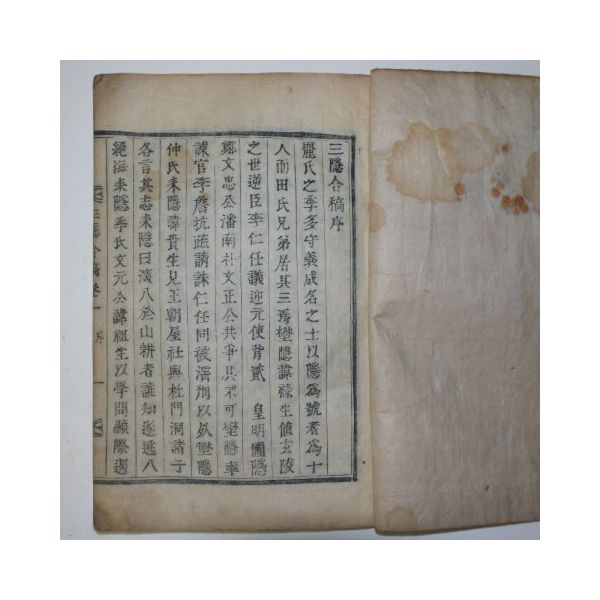 三隱合稿序
麗氏之季多守義成名之士以隱爲號者爲十
人而田氏兄弟居其三焉壄隱諱祿生値玄陵
之世逆臣李仁任議迎元使背貳 皇明圃隱
鄭文忠公潘南朴文正公共爭其不可壄隱率
諫官李詹抗疏請誅仁任同被酷刑以歿壄隱
仲氏耒隱諱貴生見王朝屋社與杜門洞諸子
各言其志耒隱曰滾八公山耕者誰知遂逃入
絕海耒隱季氏文元公諱祖生以學問顯際遇
三隱合稿卷一 序 一